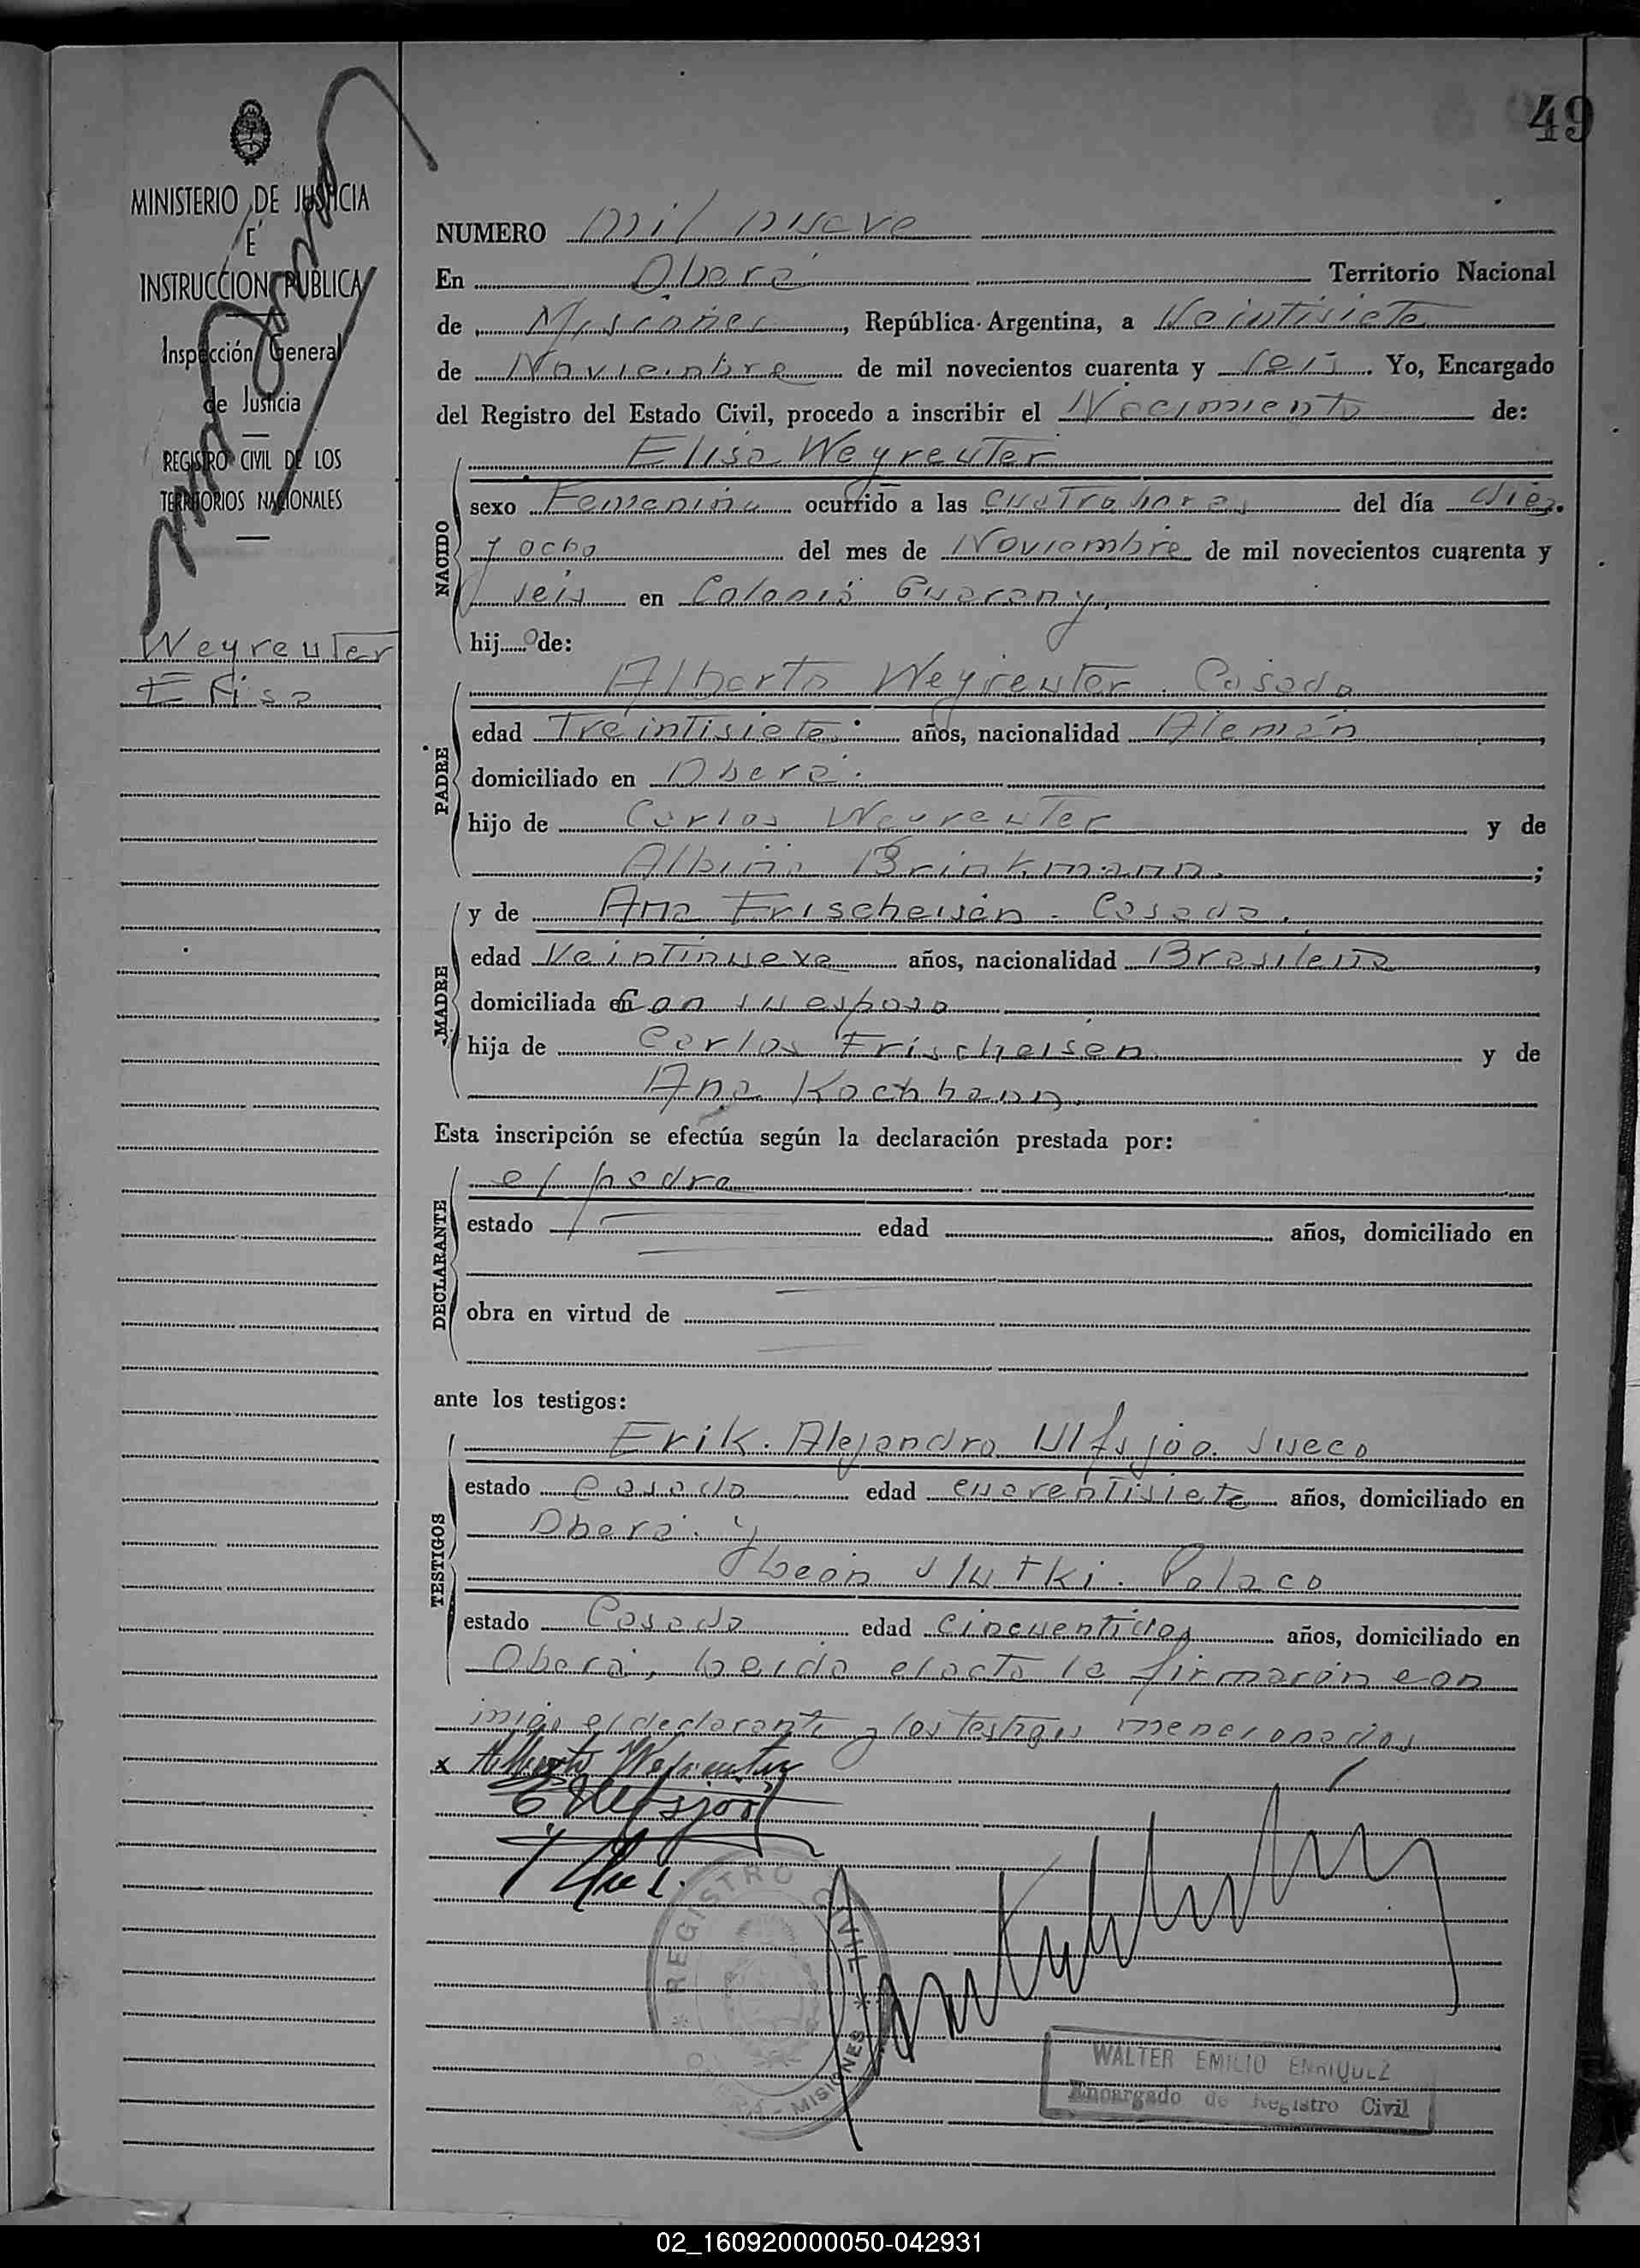 49
MINISTERIO DE JUSTICIA
E
INSTRUCCION PUBLICA
Inspección General
de Justicia
REGISTRO CIVIL DE LOS
TERRITORIOS NACIONALES
Weyreuter
Elisa
NUMERO mil nueve
En Oberá Territorio Nacional
de Misiones, República Argentina, a Veintisiete
de Noviembre de mil novecientos cuarenta y seis. Yo, Encargado
del Registro del Estado Civil, procedo a inscribir el Nacimiento de:
NACIDO
Elisa Weyreuter
sexo Femenino ocurrido a las cuatro horas del día diez
y ocho del mes de Noviembre de mil novecientos cuarenta y
seis en Colonia Guarany,
hija de:
PADRE
Alberto Weyreuter. Casado
edad Treintisiete. años, nacionalidad Alemán,
domiciliado en Oberá.
hijo de Carlos Weyreuter y de
Albina Brinkmann.;
MADRE
y de Ana Frischeisen. Casada.
edad Veintinueve años, nacionalidad Brasileña,
domiciliada en Con su esposo
hija de Carlos Frischeisen y de
Ana Kochhann.
Esta inscripción se efectúa según la declaración prestada por:
DECLARANTE
el padre
estado edad años, domiciliado en
obra en virtud de
ante los testigos:
TESTIGOS
Erik. Alejandro Ulfsjöö. Sueco
estado Casado edad cuarentisiete años, domiciliado en
Oberá. y
León Slutki. Polaco
estado Casado edad Cincuentidos años, domiciliado en
Oberá, Leida el acta la firmarón con
migo el declarante y los testigos mencionados
x Alberto Weyreuter
E Ulfsjöö
REGISTRO CIVIL
MISIONES
WALTER EMILIO ENRIQUEZ
Encargado de Registro Civil
02_160920000050-042931